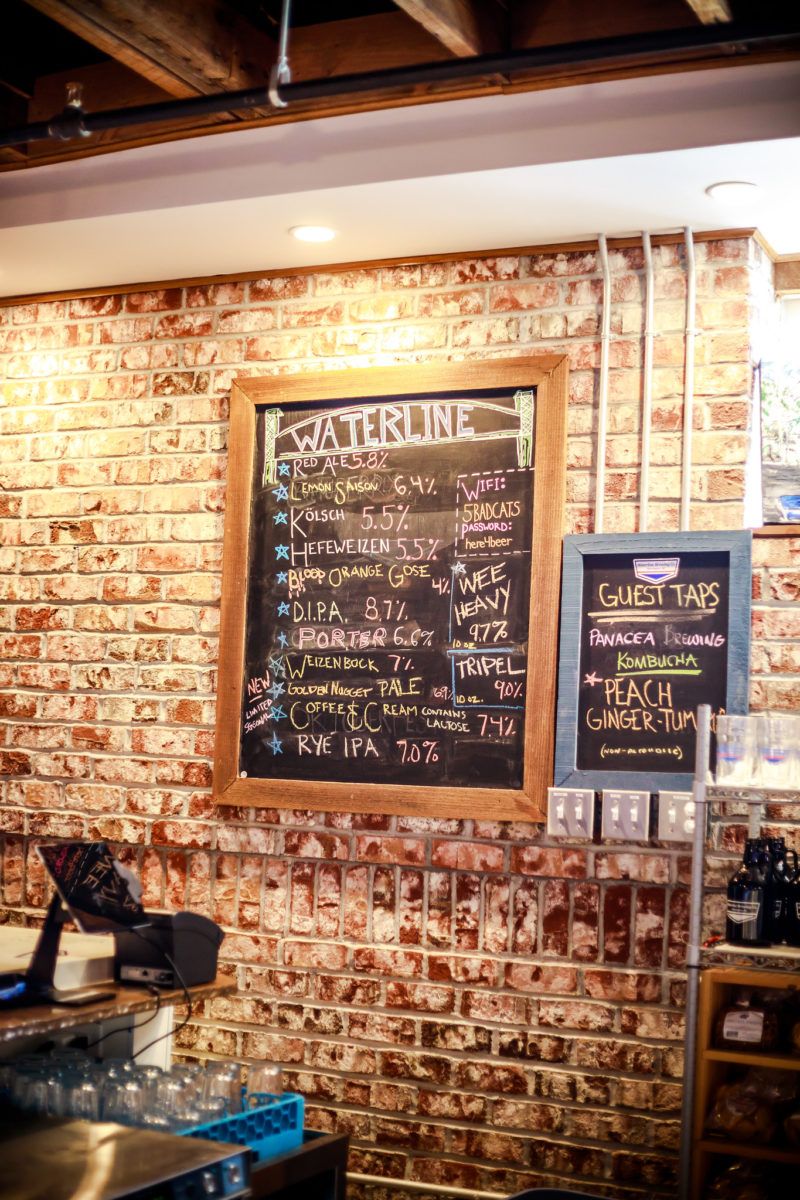 WATERLINE
RED ALE 5.8%
LEMON SAISON 6.4%
KÖLSCH 5.5%
HEFEWEIZEN 5.5%
BLOOD ORANGE GOSE 4%
D.I.P.A. 8.7%
PORTER 6.6%
WEIZENBOCK 7%
GOLDEN NUGGET PALE 6.9%
COFFEE & CREAM CONTAINS LACTOSE 7.4%
RYE IPA 7.0%
NEW
LIMITED
WIFI:
5BADCATS
PASSWORD:
here4beer
WEE
HEAVY
9.7%
10 OZ.
TRIPEL
10 OZ. 9.0%
GUEST TAPS
PANACEA BREWING
KOMBUCHA
PEACH
GINGER-TUM
(NON-ALCOHOLIC)